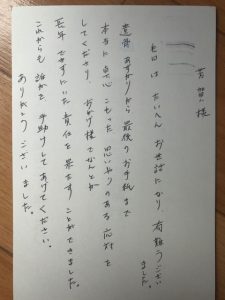 芳賀様
先日は たいへん お世話になり 有難うござい
ました。
遺骨 あずかりから 最後のお手紙まで
本当に 真心 こもった 思いやりのある 応対を
してくださり、おかげ様で なんとか
長年 できずにいた 責任を 果たす ことができました。
これからも 誰かを 手助けしてあげてください。
ありがとう ございました。